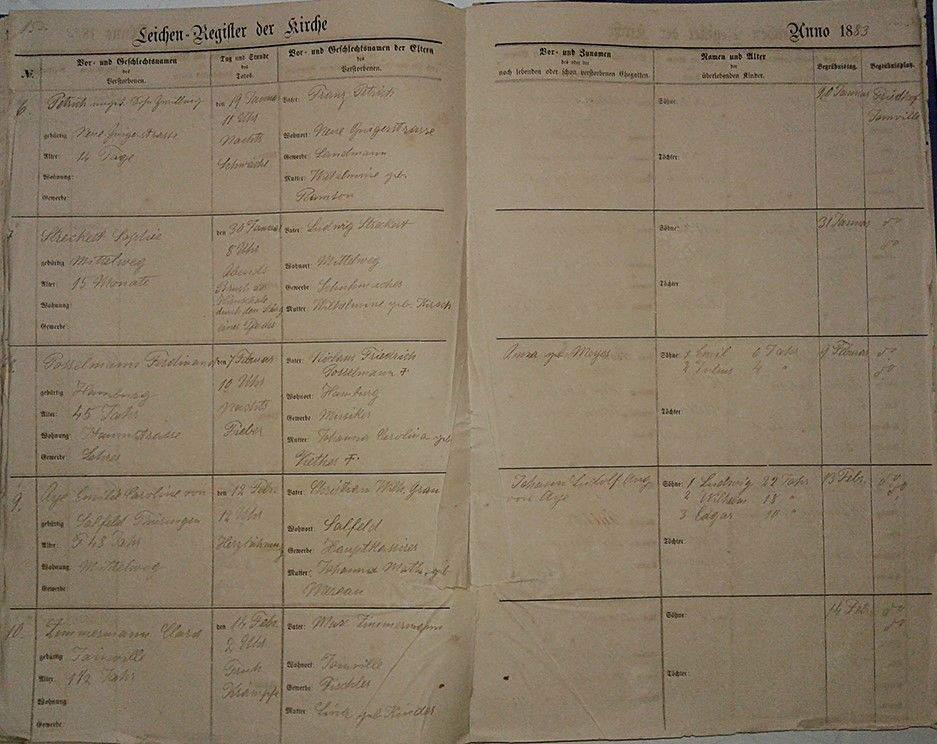 Leichen-Register der Kirche
Anno 1883
№
Vor- und Geschlechtsnamen
des
Verstorbenen.
Tag und Stunde
des
Todes.
Vor- und Geschlechtsnamen der Eltern
des
Verstorbenen.
Vor- und Zunamen
des oder der
noch lebenden oder schon verstorbenen Ehegatten.
Namen und Alter
der
überlebenden Kinder.
Begräbnistag.
Begräbnisplatz.
6
Petrich
gebürtig
Alter: 14 Tage
Wohnung:
Gewerbe:
den 19 Januar
11 Uhr
Nachts
Schwäche
Vater: Franz Petrich
Wohnort: Neue
Gewerbe: Landmann
Mutter: Wilhelmine geb.
Söhne:
Töchter:
20 Januar
Friedhof
Joinville
7
Streckert Sophie
gebürtig Mittelweg
Alter: 15 Monate
Wohnung:
Gewerbe:
den 30 Januar
8 Uhr
Abends
Bruch des
durch den
eines Pferdes
Vater: Ludwig Streckert
Wohnort: Mittelweg
Gewerbe: Schuhmacher
Mutter: Wilhelmine geb. Kirsch
Söhne:
Töchter:
31 Januar
do
do
8
Posselmann Ferdinand
gebürtig Hamburg
Alter: 45 Jahr
Wohnung:
Gewerbe: Lehrer
den 7 Februar
10 Uhr
Nachts
Fieber
Vater: Friedrich
Posselmann †
Wohnort: Hamburg
Gewerbe: Musiker
Mutter: Johanna Carolina geb.
†
Anna geb. Meyer
Söhne: 1 Emil 6 Jahr
2 Julius 4 "
Töchter:
9 Februar
do
do
9
Emilie Caroline von
gebürtig Salfeld Thüringen
Alter: 48 Jahr
Wohnung: Mittelweg
Gewerbe:
den 12 Febr.
12 Uhr
Herzlähmung
Vater: Christian Wilh.
Wohnort: Salfeld
Gewerbe: Hauptkassirer
Mutter: Johanna Math. geb.
Johann Ludolf Aug.
von
Söhne: 1 Ludwig 22 Jahr
2 Wilhelm 18 "
3 Edgar 10 "
Töchter:
13 Febr.
do
do
10
Zimmermann Clara
gebürtig Joinville
Alter: 1 1/2 Jahr
Wohnung:
Gewerbe:
den 14 Febr.
2 Uhr
Früh
Krämpfe
Vater: Max Zimmermann
Wohnort: Joinville
Gewerbe: Tischler
Mutter: geb. Kinder
Söhne:
Töchter:
14 Febr.
do
do